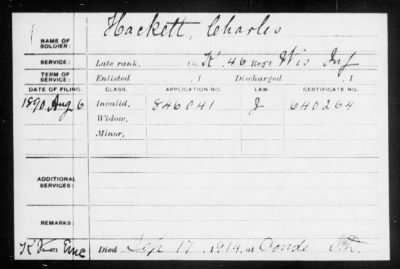 NAME OF SOLDIER: Hackett, Charles
SERVICE: Late rank, Co. K, 46 Reg't Wis Inf
TERM OF SERVICE: Enlisted , 1 Discharged , 1
DATE OF FILING. CLASS. APPLICATION NO. LAW. CERTIFICATE NO.
1890 Aug 6 Invalid, 846041 J 640264
Widow,
Minor,
ADDITIONAL SERVICES:
REMARKS:
Died Sep. 17, 1914, at Conde